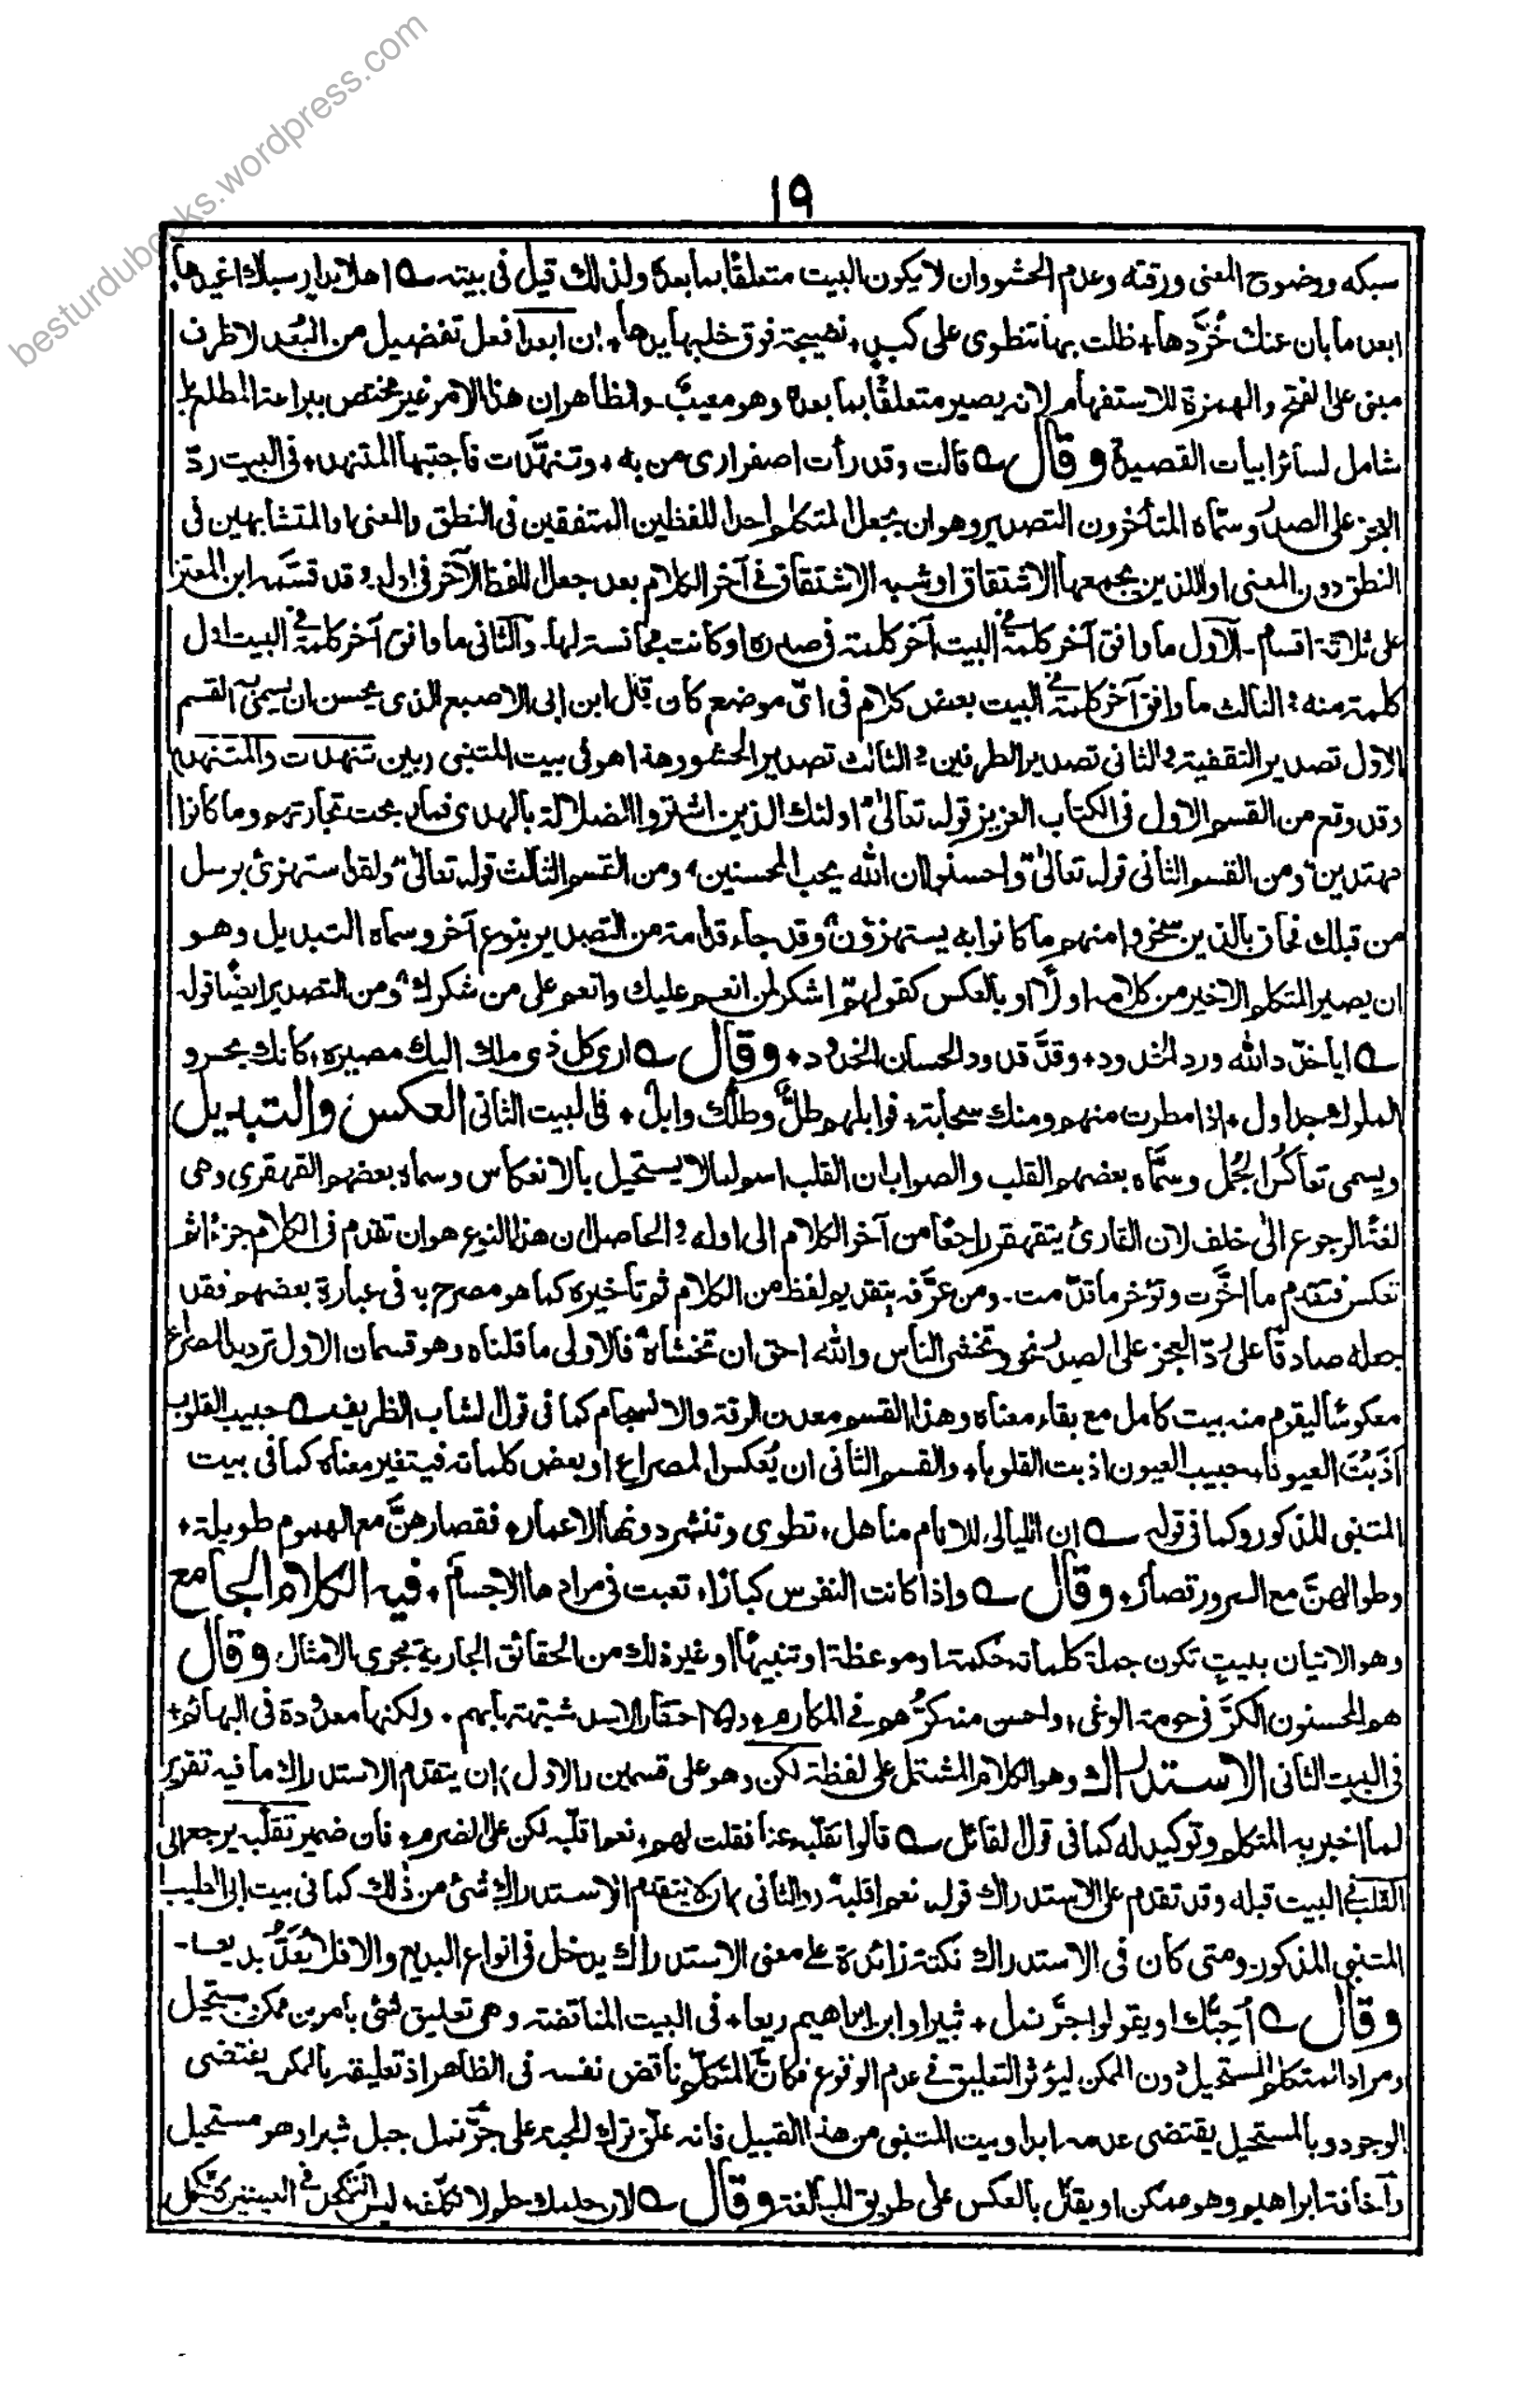 besturdubooks.wordpress.com
١٩
سبكه ووضوح المعنى ورقته وعدم الحشو وان لا يكون البيت متعلقًا بما بعده ولذلك قيل فى بيته ؎ اهلا بدار سباك اغيدها ؛
ابعد ما بان عنك خُرَّدها + ظلت بها تنطوى على كبد + نضيجة فوق خلبها يدها + ان ابعد افعل تفضيل من البُعد لا ظرف
مبنى على الفتح والهمزة للاستفهام لانه يصير متعلقًا بما بعده وهو معيبٌ ـ والظاهر ان هذا الامر غير مختص ببراعة المطلع بل
شامل لسائر ابيات القصيدة وقال ؎ قالت وقد رأت اصفرارى من به + وتنهَّدت فاجبتها المتنهد + فى البيت ردّ
العجز على الصدر وسمّاه المتأخرون التصدير وهو ان يجعل المتكلم احد اللفظين المتفقين فى النطق والمعنى او المتشابهين فى
النطق دون المعنى او اللذين يجمعهما الاشتقاق او شبه الاشتقاق فى آخر الكلام بعد جعل اللفظ الآخر فى اوله وقد قسَّمه ابن المعتز
على ثلاثة اقسام ـ الاول ما وافق آخر كلمة فى البيت آخر كلمة فى صدره او كانت مجانسة لها ـ والثانى ما وافق آخر كلمة فى البيت اول
كلمة منه ؛ الثالث ما وافق آخر كلمة فى البيت بعض كلام فى اىّ موضع كان قال ابن ابى الاصبع الذى يحسن ان يسمى القسم
الاول تصدير التقفية والثانى تصدير الطرفين والثالث تصدير الحشو وهذا هو فى بيت المتنبى وبين تنهدت والمتنهد
وقد وقع من القسم الاول فى الكتاب العزيز قوله تعالىٰ اولئك الذين اشتروا الضلالة بالهدى فما ربحت تجارتهم وما كانوا
مهتدين ومن القسم الثانى قوله تعالىٰ واحسنوا ان الله يحب المحسنين ومن القسم الثالث قوله تعالىٰ ولقد استهزئ برسل
من قبلك فحاق بالذين سخروا منهم ما كانوا به يستهزؤن وقد جاء قدامة من التصدير بنوع آخر وسماه التبديل وهو
ان يصير المتكلم الاخير من كلامه اولًا او بالعكس كقولهم اشكر لمن انعم عليك وانعم على من شكرك ومن التصدير ايضًا قوله
؎ ايا خدّد الله ورد الخدود + وقدَّ قدود الحسان القدود + وقال ؎ ارى كل ذى ملك اليك مصيره + كانك بحر و
الملوك جداول + اذا مطرت منهم ومنك سحابة + فوابلهم طلٌّ وطلك وابل + فى البيت الثانى العكس والتبديل
ويسمى تعاكُرا لجُمل وسمَّاه بعضهم القلب والصواب ان القلب اسم لما لا يستحيل بالانعكاس وسماه بعضهم القهقرى وهى
لغةً الرجوع الىٰ خلف لان القارئ يتقهقر راجعًا من آخر الكلام الى اوله والحاصل ان هذا النوع هو ان تقدم فى الكلام جزءًا ثم
تعكس فتقدم ما اخَّرت وتؤخر ما قدّمت ـ ومن عرَّفه بتقديم لفظ من الكلام ثم تأخيره كما هو مصرح به فى عبارة بعضهم فقد
جعله صادقًا على ردّ العجز على الصدر نحو وتخشى الناس والله احق ان تخشاه فالاولى ما قلناه وهو قسمان الاول ترديد المصراع
معكوسًا ليقوم منه بيت كامل مع بقاء معناه وهذا القسم معدن الرقة والانسجام كما فى قول الشاب الظريف ؎ حبيب القلوب
اَذَبْتَ العيونا + حبيب العيون اذبت القلوبا + والقسم الثانى ان يُعكس المصراع او بعض كلماته فيتغير معناه كما فى بيت
المتنبى المذكور وكما فى قوله ؎ ان الليالى للانام مناهل + تطوى وتنشر دونها الاعمار + فقصارهنَّ مع الهموم طويلة +
وطوالهنَّ مع السرور قصار + وقال ؎ واذا كانت النفوس كبارًا + تعبت فى مرادها الاجسام + فيه الكلام الجامع
وهو الاتيان ببيتٍ تكون جملة كلماته حكمة او موعظة او تنبيهًا او غير ذلك من الحقائق الجارية مجرى الامثال وقال
هم المحسنون الكرَّ فى حومة الوغى + واحسن منه كرُّهم فى المكارم + ولولا احتقار الاسد شبهتها بهم + ولكنها معدودة فى البهائم +
فى البيت الثانى الاستدراك وهو الكلام المشتمل على لفظة لكن وهو على قسمين (الاول) ان يتقدم الاستدراك ما فيه تقرير
لما اخبر به المتكلم وتوكيد له كما فى قول القائل ؎ قالوا تقلّبه عنا فقلت لهم + نعم اقلّبه لكن على الضرم + فان ضمير تقلّبه يرجع الى
القلب فى البيت قبله وقد تقدم على الاستدراك قوله نعم اقلبه (والثانى) ان لا يتقدم الاستدراك شئ من ذٰلك كما فى بيت ابى الطيب
المتنبى المذكور ـ ومتى كان فى الاستدراك نكتة زائدة على معنى الاستدراك يدخل فى انواع البديع والا فلا يُعَدُّ بديعا ـ
وقال ؎ اُحِبُّك او يقولوا جرَّ نمل + ثبيرا وابن ابراهيم ريعا + فى البيت المناقضة وهى تعليق شئ بامرين ممكن ومستحيل
ومراد المتكلم المستحيل دون الممكن ليؤثر التعليق فى عدم الوقوع فكانَّ المتكلّم ناقض نفسه فى الظاهر اذ تعليقه بالممكن يقتضى
الوجود وبالمستحيل يقتضى عدمه ابدا وبيت المتنبى من هذا القبيل فانه علّق ترك المحبة على جرَّ نمل جبل ثبرا وهو مستحيل
واخافة ابراهيم وهو ممكن او يقال بالعكس على طريق المبالغة وقال ؎ لان حلمك حلم لا تكلّفه + ليس التكحل فى العينين كالكحل